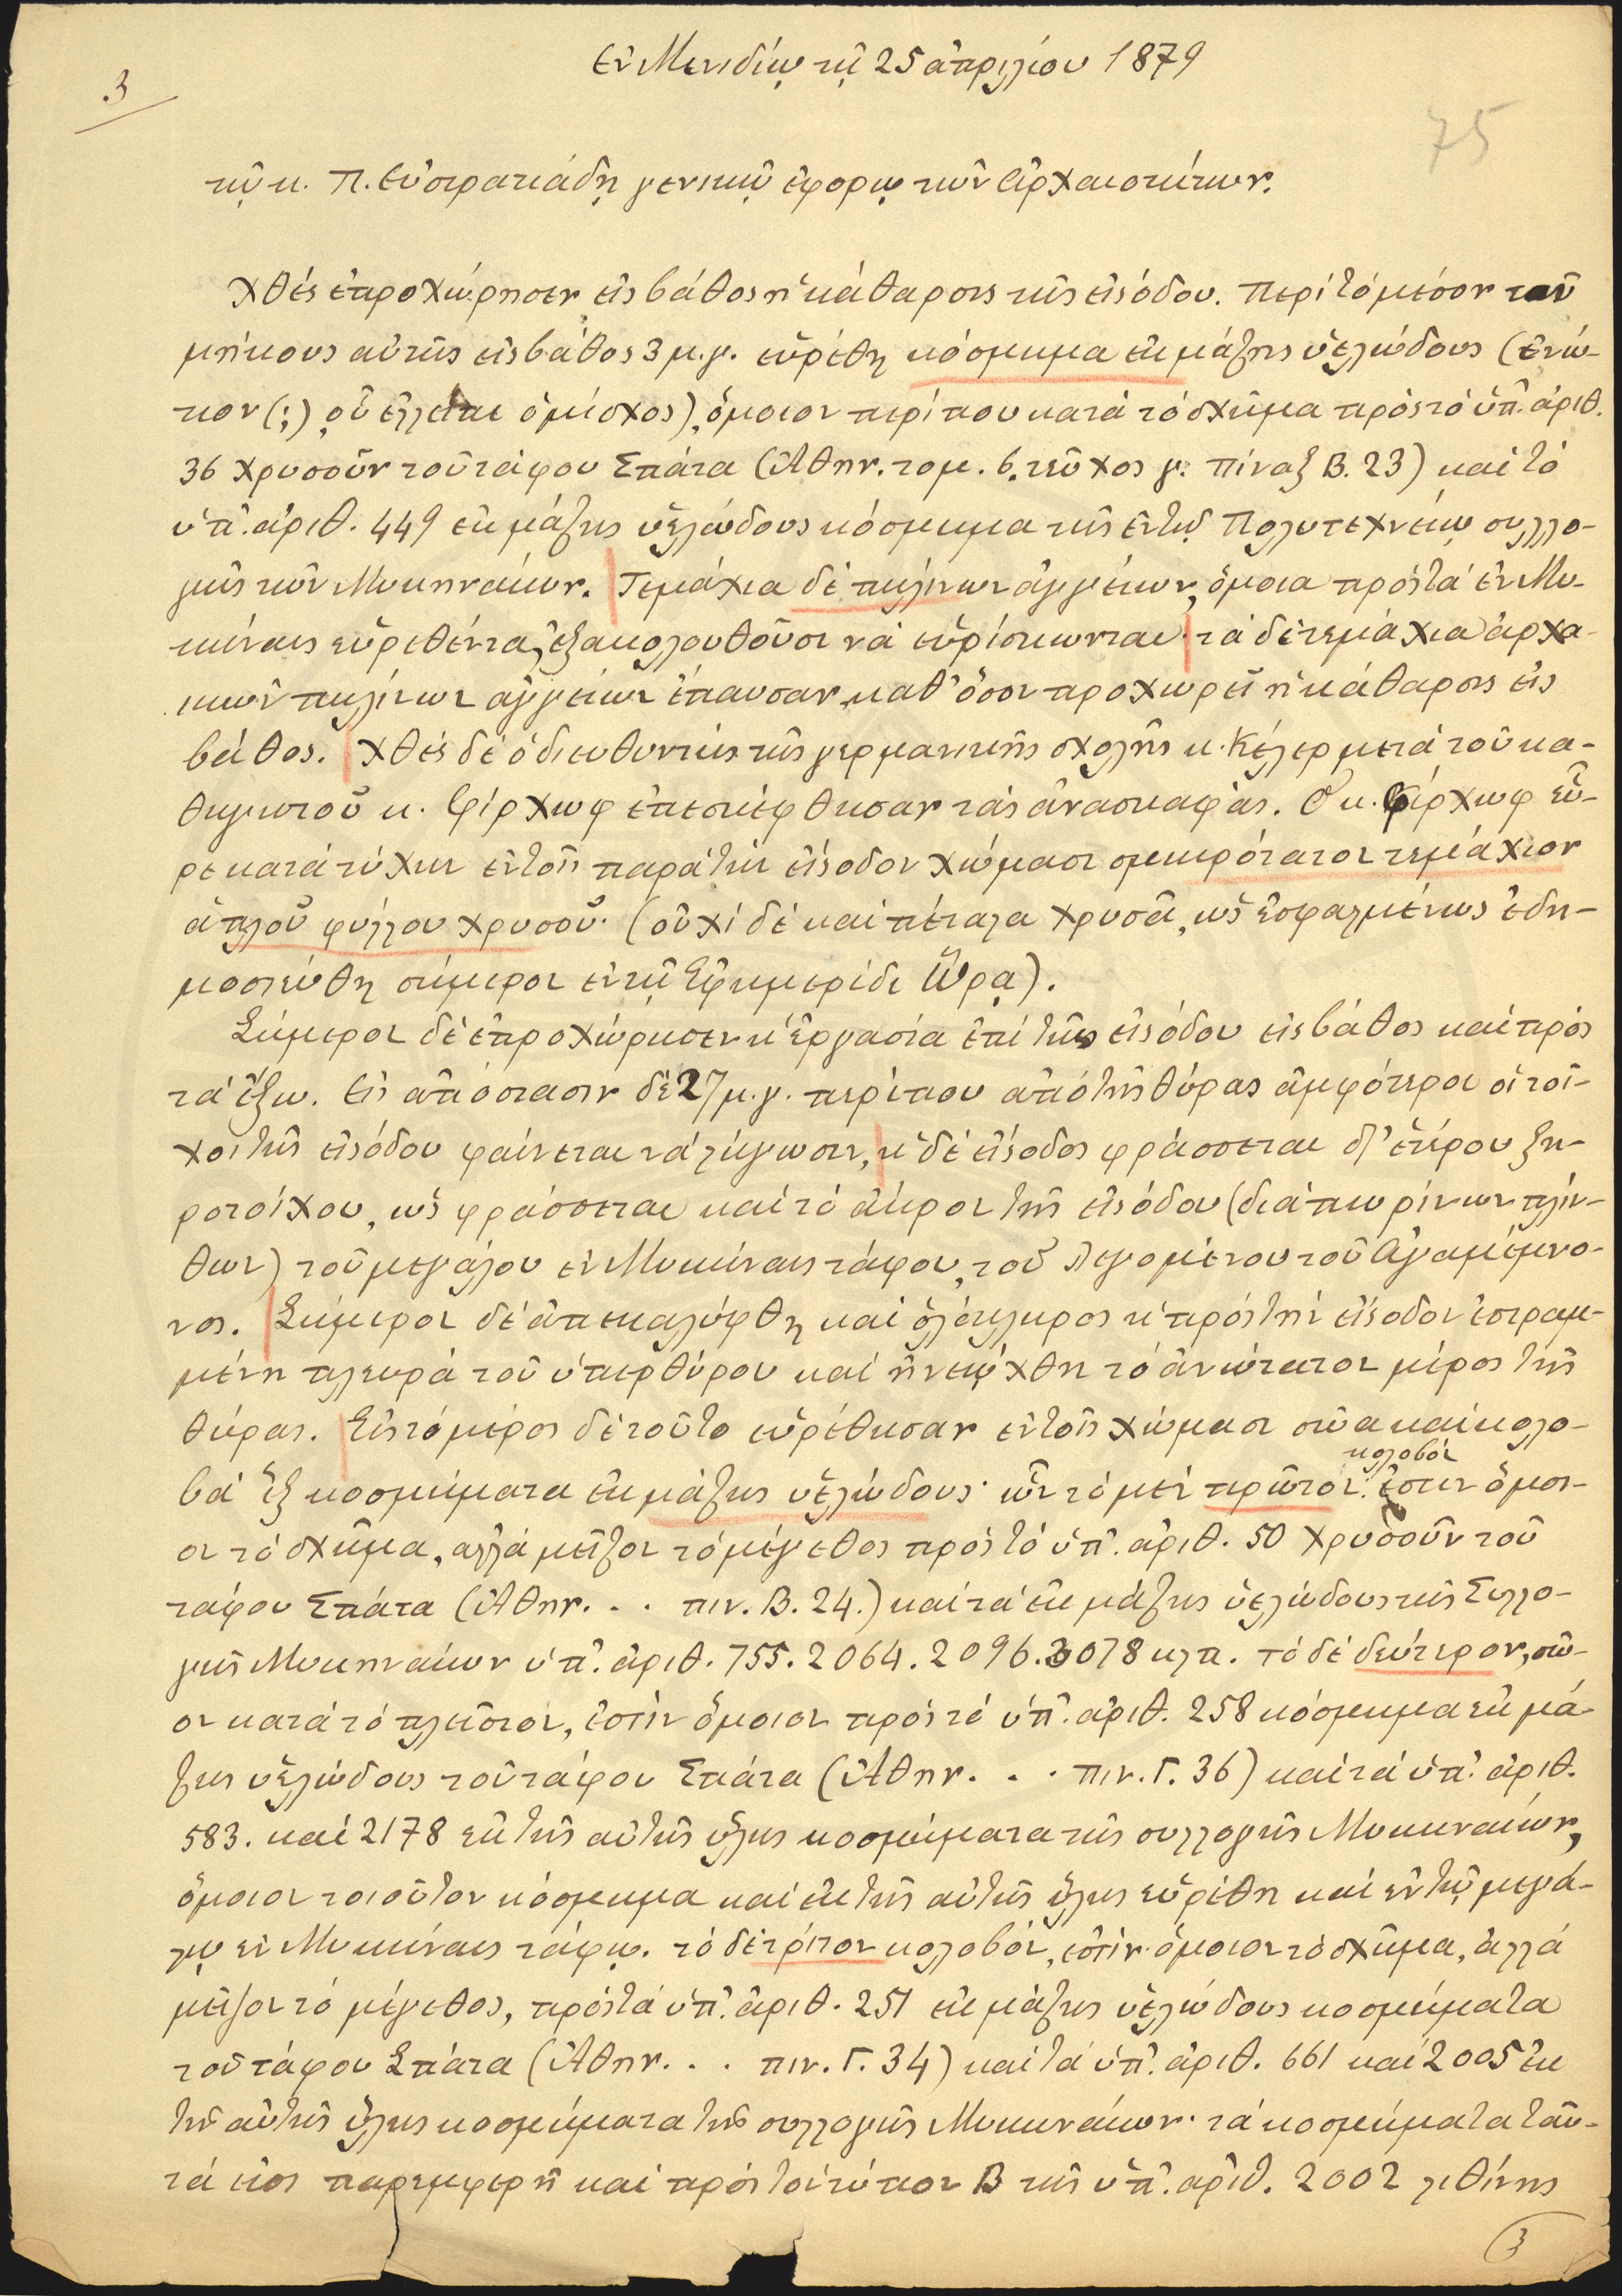 Ἐν Μενιδίῳ τῇ 25 ἀπριλίου 1879
3
75
τῷ κ. Π. Εὐστρατιάδῃ γενικῷ ἐφόρῳ τῶν Ἀρχαιοτήτων.
Χθές ἐπροχώρησεν εἰς βάθος ἡ κάθαρσις τῆς εἰσόδου. Περί τό μέσον τοῦ
μήκους αὐτῆς εἰς βάθος 3 μ.γ. εὑρέθη κόσμημα ἐκ μάζης ὑελώδους (ἐνώ-
τιον (;) οὗ ἐλλείπει ὁ μίσχος), ὅμοιον περίπου κατά τό σχῆμα πρός τό ὑπ. ἀριθ.
36 χρυσοῦν τοῦ τάφου Σπάτα (Ἀθην. τομ. 6. τεῦχος γ. πίναξ Β. 23) καί τό
ὑπ. ἀριθ. 449 ἐκ μάζης ὑελώδους κόσμημα τῆς ἐν τῷ Πολυτεχνείῳ συλλο-
γῆς τῶν Μυκηναίων. Τεμάχια δέ πηλίνων ἀγγείων, ὅμοια πρός τά ἐν Μυ-
κήναις εὑρεθέντα, ἐξακολουθοῦσι νά εὑρίσκωνται· τά δέ τεμάχια ἀρχα-
ικῶν πηλίνων ἀγγείων ἔπαυσαν, καθ' ὅσον προχωρεῖ ἡ κάθαρσις εἰς
βάθος. Χθές δέ ὁ διευθυντής τῆς γερμανικῆς σχολῆς κ. Κέλερ μετά τοῦ κα-
θηγητοῦ κ. Φίρχωφ ἐπεσκέφθησαν τάς ἀνασκαφάς. Ὁ κ. Φίρχωφ εὗ-
ρε κατά τύχην ἐν τοῖς παρά τήν εἴσοδον χώμασι σμικρότατον τεμάχιον
ἁπλοῦ φύλλου χρυσοῦ· (οὐχί δέ καί πέταλα χρυσᾶ, ὡς ἐσφαλμένως ἐδη-
μοσιεύθη σήμερον ἐν τῇ Ἐφημερίδι Ὥρᾳ).
Σήμερον δέ ἐπροχώρησεν ἡ ἐργασία ἐπί τῆς εἰσόδου εἰς βάθος καί πρός
τά ἔξω. Εἰς ἀπόστασιν δέ 27 μ.γ. περίπου ἀπό τῆς θύρας ἀμφότεροι οἱ τοῖ-
χοι τῆς εἰσόδου φαίνεται νά λήγωσιν, ἡ δέ εἴσοδος φράσσεται δι' ἑτέρου ξη-
ροτοίχου, ὡς φράσσεται καί τό ἄκρον τῆς εἰσόδου (διά πωρίνων πλίν-
θων) τοῦ μεγάλου ἐν Μυκήναις τάφου, τοῦ λεγομένου τοῦ Ἀγαμέμνο-
νος. Σήμερον δέ ἀπεκαλύφθη καί ὁλόκληρος ἡ πρός τήν εἴσοδον ἐστραμ-
μένη πλευρά τοῦ ὑπερθύρου καί ἠνεῴχθη τό ἀνώτατον μέρος τῆς
θύρας. Εἰς τό μέρος δέ τοῦτο εὑρέθησαν ἐν τοῖς χώμασι σῶα καί κολο-
βά ἕξ κοσμήματα ἐκ μάζης ὑελώδους· ὧν τό μέν πρῶτον κολοβόν ἐστιν ὅμοι-
ον τό σχῆμα, ἀλλά μεῖζον τό μέγεθος πρός τό ὑπ. ἀριθ. 50 χρυσοῦν τοῦ
τάφου Σπάτα (Ἀθην. . . πιν. Β. 24.) καί τά ἐκ μάζης ὑελώδους τῆς Συλλο-
γῆς Μυκηναίων ὑπ. ἀριθ. 755. 2064. 2096. 3078 κλπ. τό δέ δεύτερον, σῶ-
ον κατά τό πλεῖστον, ἐστίν ὅμοιον πρός τό ὑπ. ἀριθ. 258 κόσμημα ἐκ μά-
ζης ὑελώδους τοῦ τάφου Σπάτα (Ἀθην. . . πιν. Γ. 36) καί τά ὑπ. ἀριθ.
583. καί 2178 ἐκ τῆς αὐτῆς ὕλης κοσμήματα τῆς συλλογῆς Μυκηναίων,
ὅμοιον τοιοῦτον κόσμημα καί ἐκ τῆς αὐτῆς ὕλης εὑρέθη καί ἐν τῷ μεγά-
λῳ ἐν Μυκήναις τάφῳ. τό δέ τρίτον κολοβόν, ἐστίν ὅμοιον τό σχῆμα, ἀλλά
μεῖζον τό μέγεθος, πρός τά ὑπ. ἀριθ. 251 ἐκ μάζης ὑελώδους κοσμήματα
τοῦ τάφου Σπάτα (Ἀθην. . . πιν. Γ. 34) καί τά ὑπ. ἀριθ. 661 καί 2005 ἐκ
τῆς αὐτῆς ὕλης κοσμήματα τῆς συλλογῆς Μυκηναίων· τά κοσμήματα ταῦ-
τά εἰσι παρεμφερῆ καί πρός τόν τύπον Β τῆς ὑπ. ἀριθ. 2002 λιθίνης
3